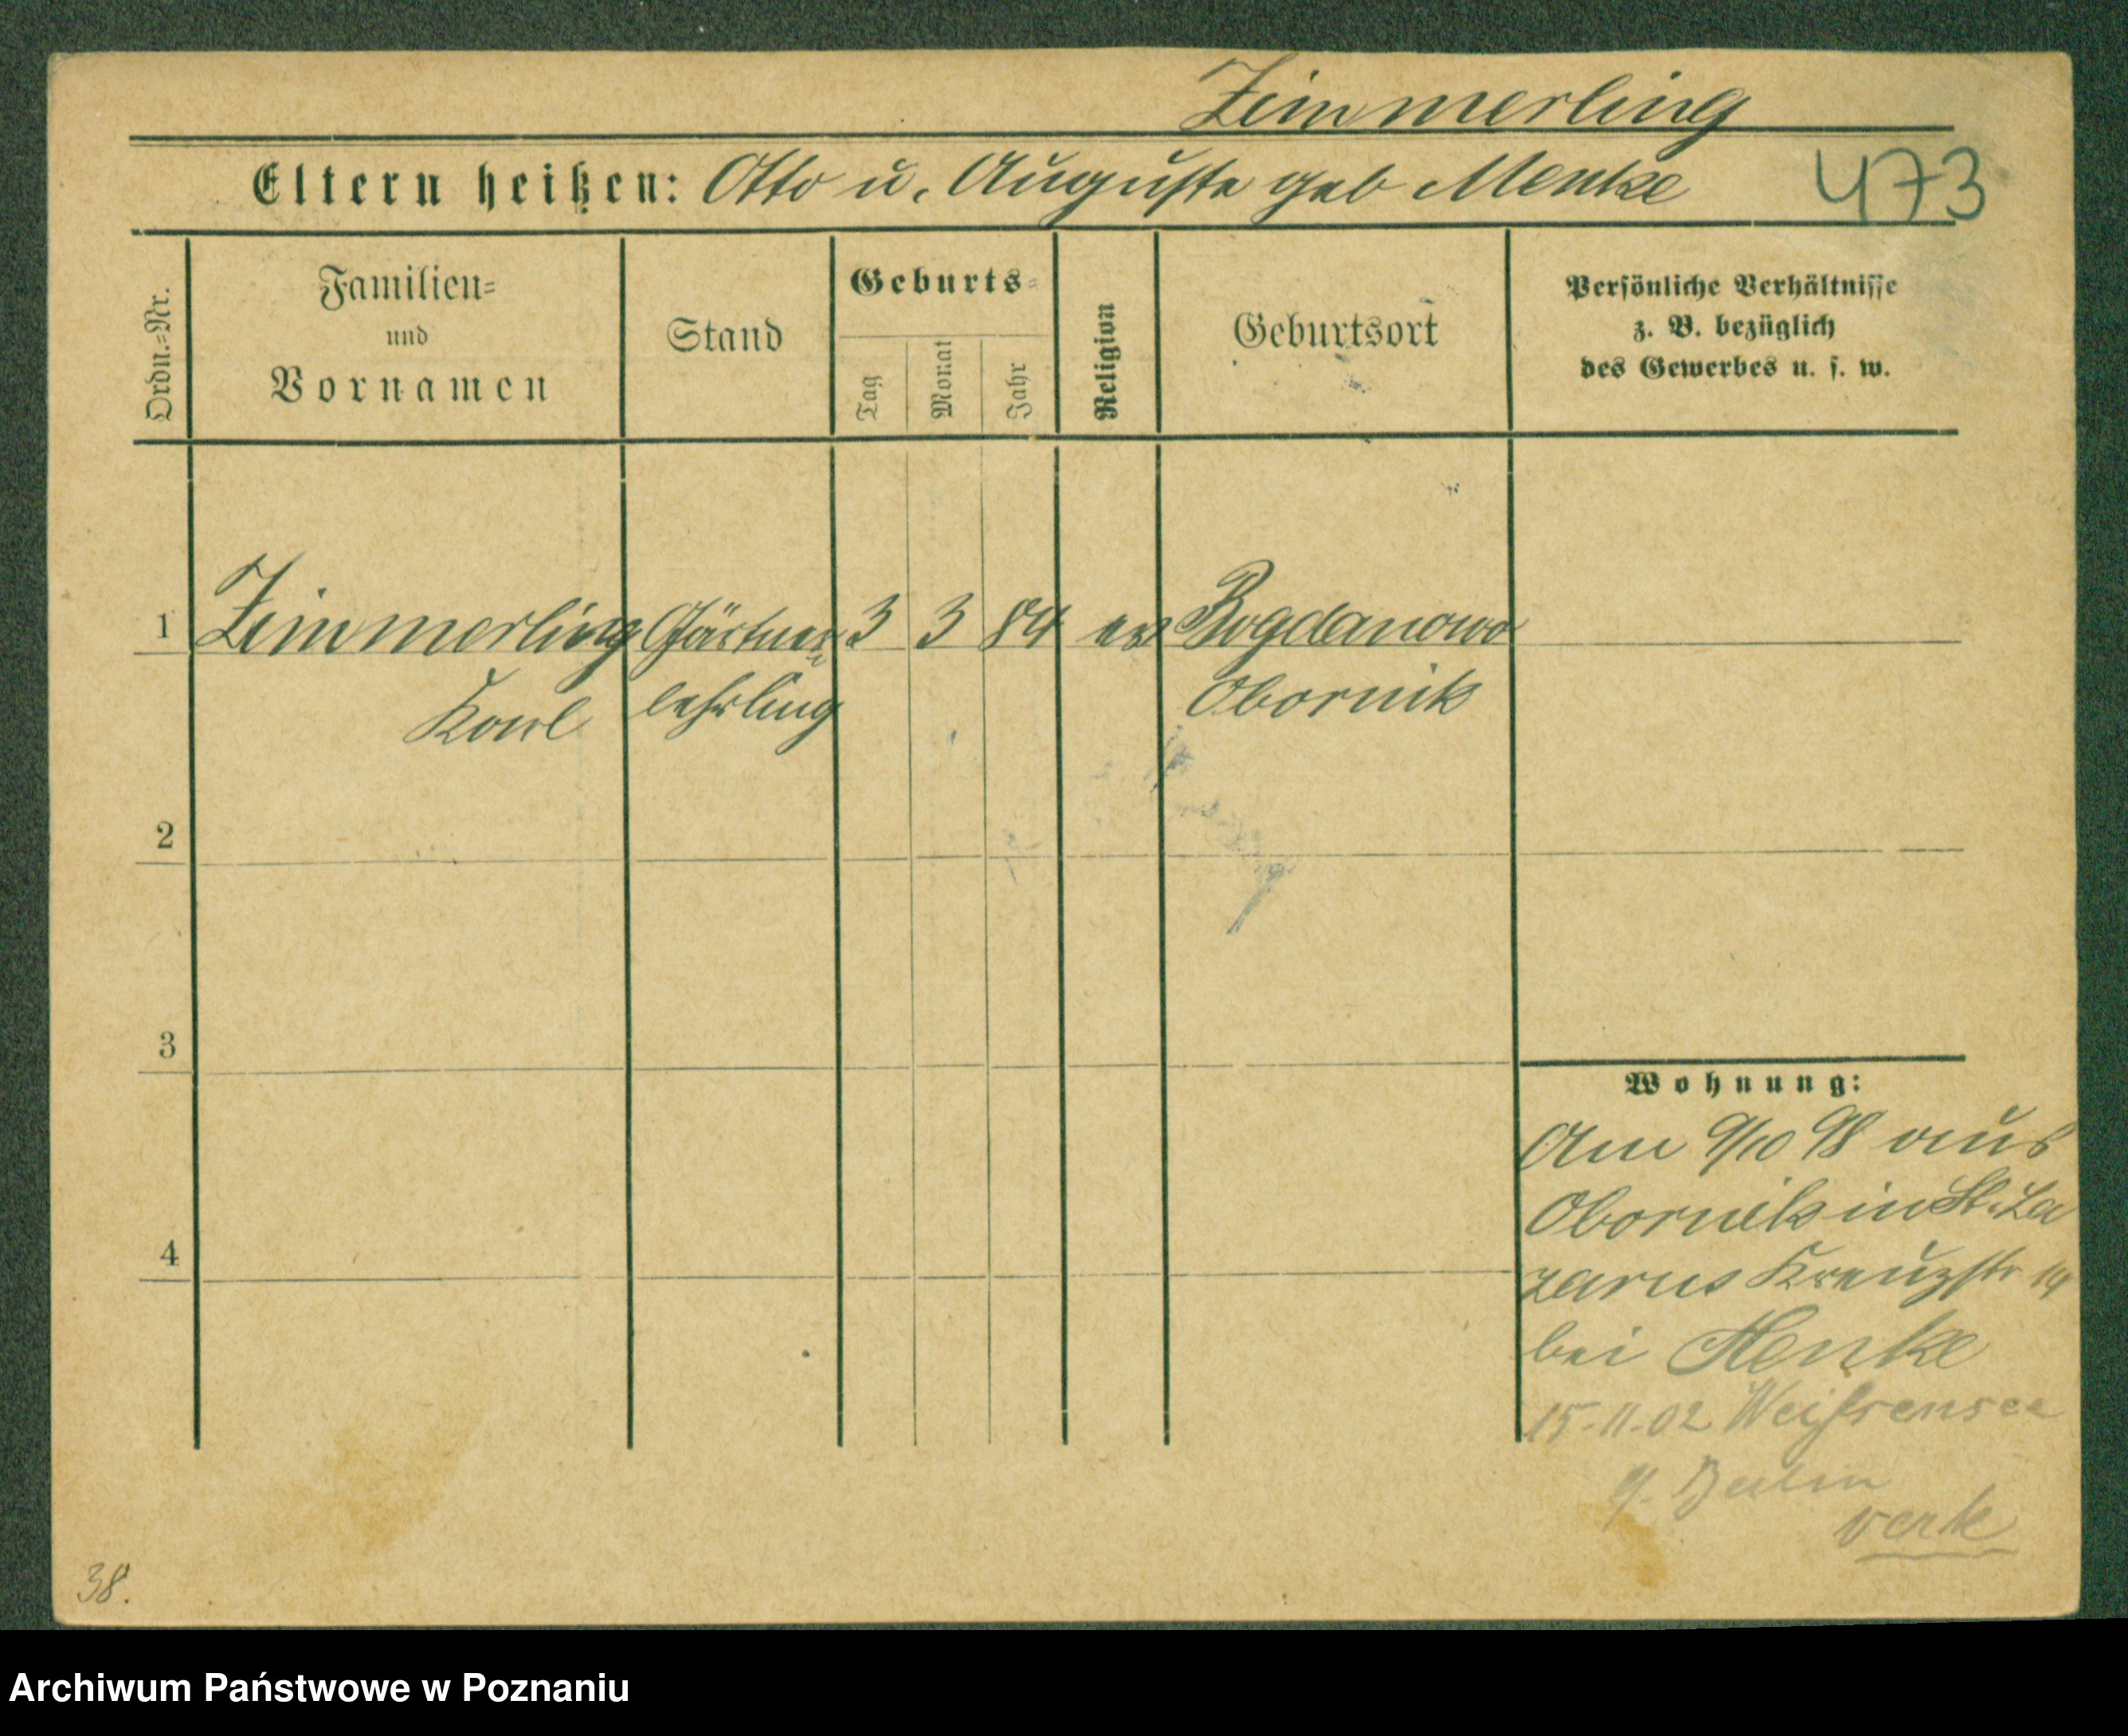 Zimmerling
Eltern heißen: Otto u. Auguste geb Menke 473
Ordn.=Nr.
Familien=
und
Vornamen
Stand
Geburts=
Tag
Monat
Jahr
Religion
Geburtsort
Persönliche Verhältnisse
z. B. bezüglich
des Gewerbes u. s. w.
1 Zimmerling Gärtner= 3 3 84 ev Bogdanowo
Karl lehrling Obornik
2
3
4
Wohnung:
Am 9/10 98 aus
Obornik in St. La
zarus Kreuzstr 14
bei Henke
15-11-02 Weißensee
b/. Berlin
verk
38.
Archiwum Państwowe w Poznaniu